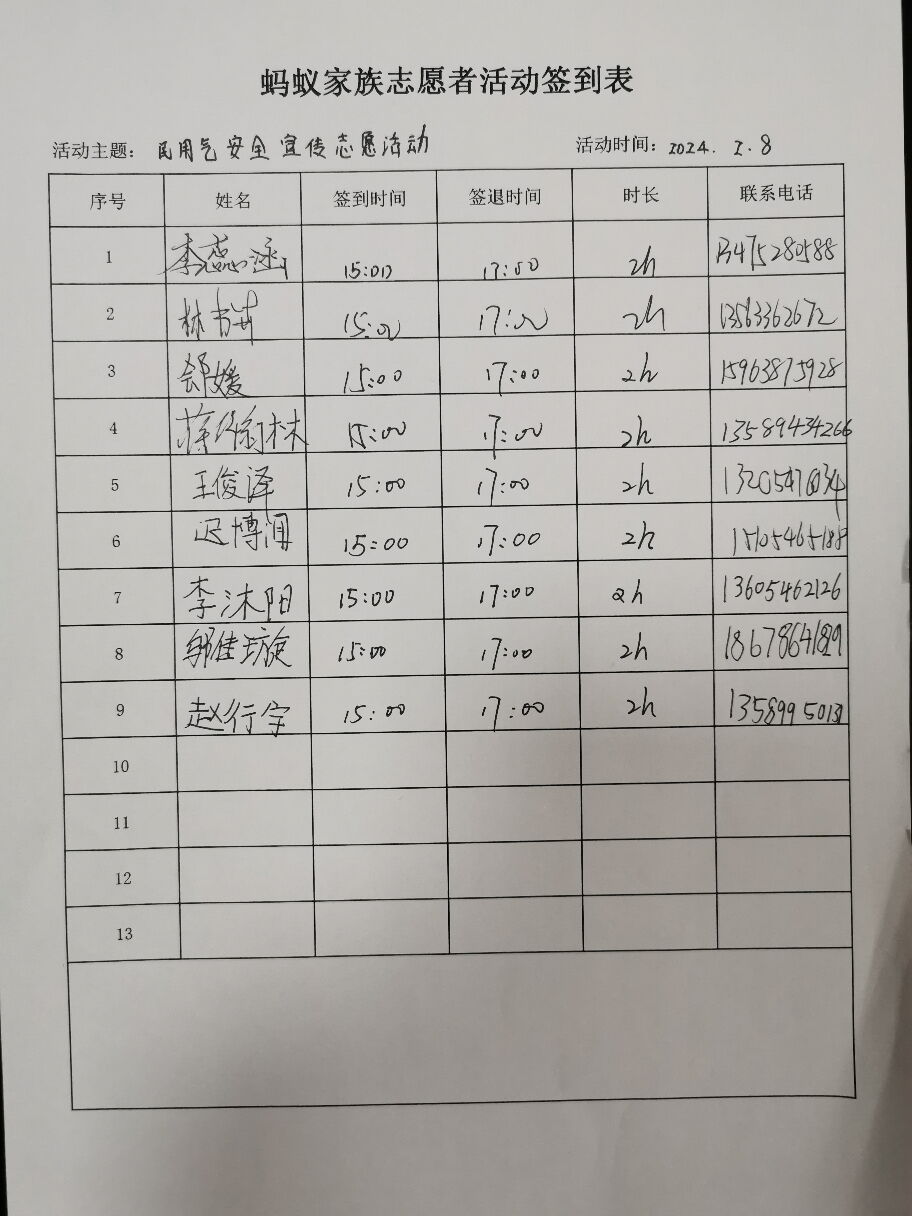 蚂蚁家族志愿者活动签到表
活动主题： 民用气安全宣传志愿活动 活动时间：2024. 2.8
序号 姓名 签到时间 签退时间 时长 联系电话
1 李蕊涵 15:00 17:00 2h 13475280588
2 林书卉 15:00 17:00 2h 13563362672
3 郄媛 15:00 17:00 2h 15963875928
4 15:00 17:00 2h 13589434266
5 王俊泽 15:00 17:00 2h
6 迟博润 15:00 17:00 2h 15105465188
7 李沐阳 15:00 17:00 2h 13605462126
8 郭佳璇 15:00 17:00 2h
9 赵行宇 15:00 17:00 2h
10
11
12
13